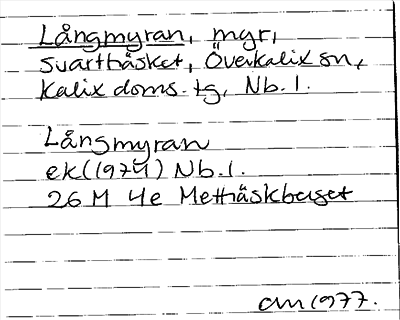 Långmyran, myr,
Svartbäsket, Överkalix sn,
Kalix doms. tg, Nb. l.
Långmyran
ek (1974) Nb. l.
26 M 4e Metträskberget
am 1977.